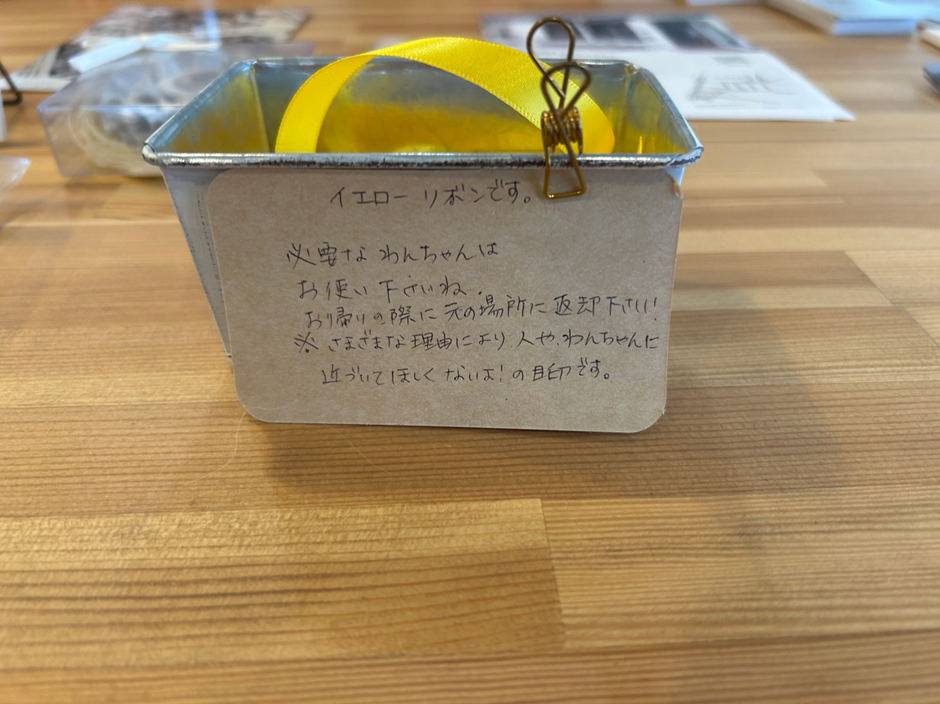 イエローリボンです。
必要なわんちゃんは
お使い下さいね.
お帰りの際に元の場所に返却下さい!
※さまざまな理由により人や、わんちゃんに
近づいてほしくないよ!の目印です。